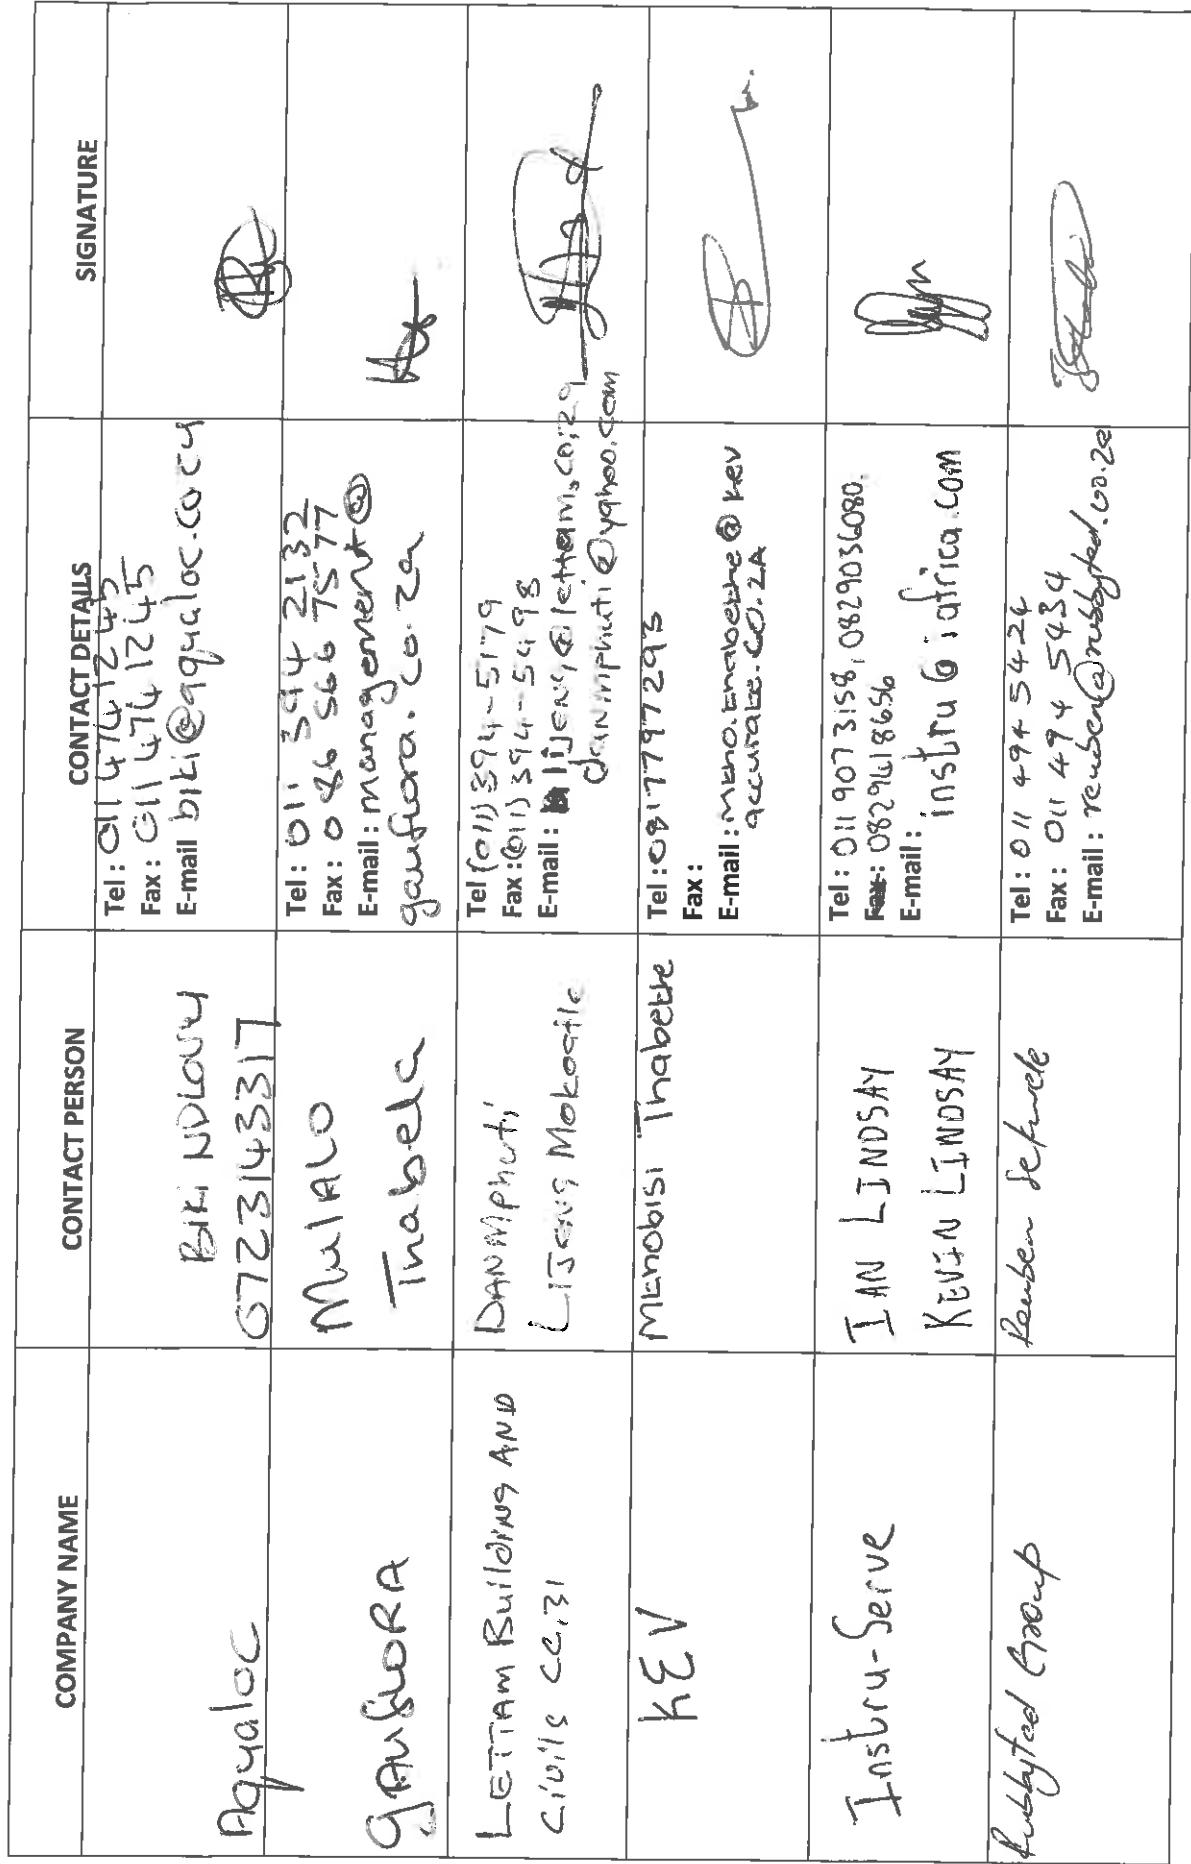 COMPANY NAME
CONTACT PERSON
CONTACT DETAILS
SIGNATURE
Aqualoc
BIKI NDLOVU
0723143317
Tel : 011 4741245
Fax : 011 474 1245
E-mail biki@aqualoc.co.za
gAUfLORA
MulALO
Thabela
Tel : 011 394 2132
Fax : 086 566 7577
E-mail : management@
gauflora.co.za
LETTAM Building AND
Civils CC,31
DAN Mphuti
LIJENG Mokoatle
Tel (011) 394-5179
Fax : (011) 394-5498
E-mail : lijeng@lettam.co.za
danmphuti@yahoo.com
KEV
Thabethe
Tel : 0817797293
Fax :
E-mail :
accurate.co.ZA
Instru-Serve
IAN LINDSAY
KEVIN LINDSAY
Tel : 011 9073158, 0829036080.
Fax : 0829418656
E-mail :
instru@iafrica.com
Rubbyted Group
Reuben
Tel : 011 494 5424
Fax : 011 494 5434
E-mail : reuben@rubbyted.co.za